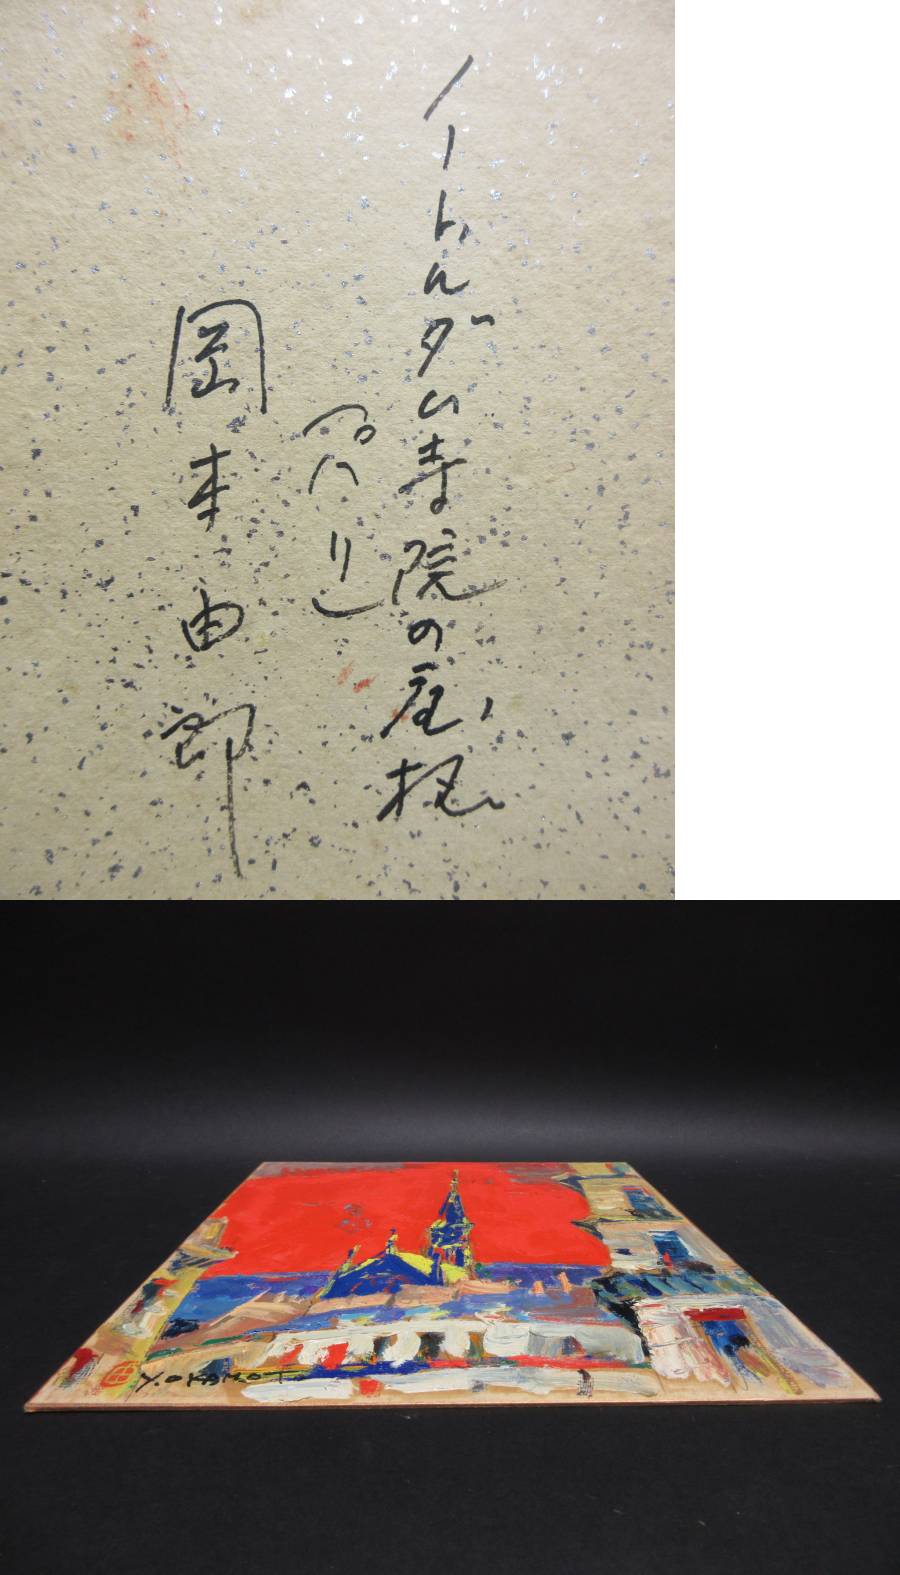 ノートルダム寺院の尾根
（パリ）
岡本由郎
Y.OKAMOTO